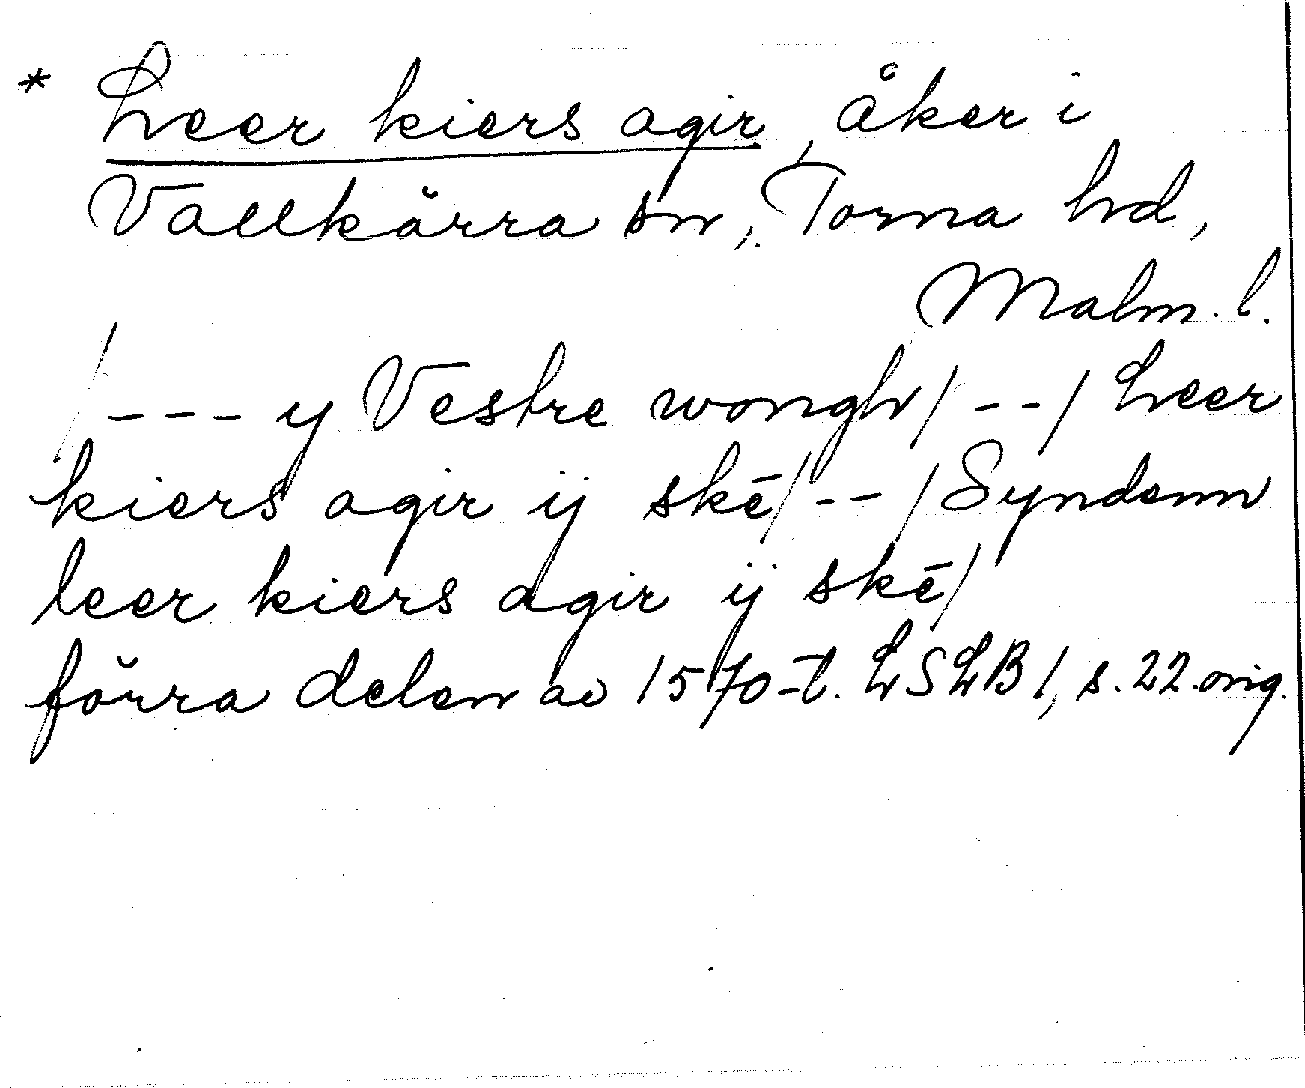 * Leer kiers agir, åker i
Vallkärra sn, Torna hd,
Malm. l.
/--- y Vestre wongh/--/ Leer
kiers agir ij skē/--/Syndenn
leer kiers agir ij skē/
förra delen av 1570-t. LSLB 1, s. 22 orig.